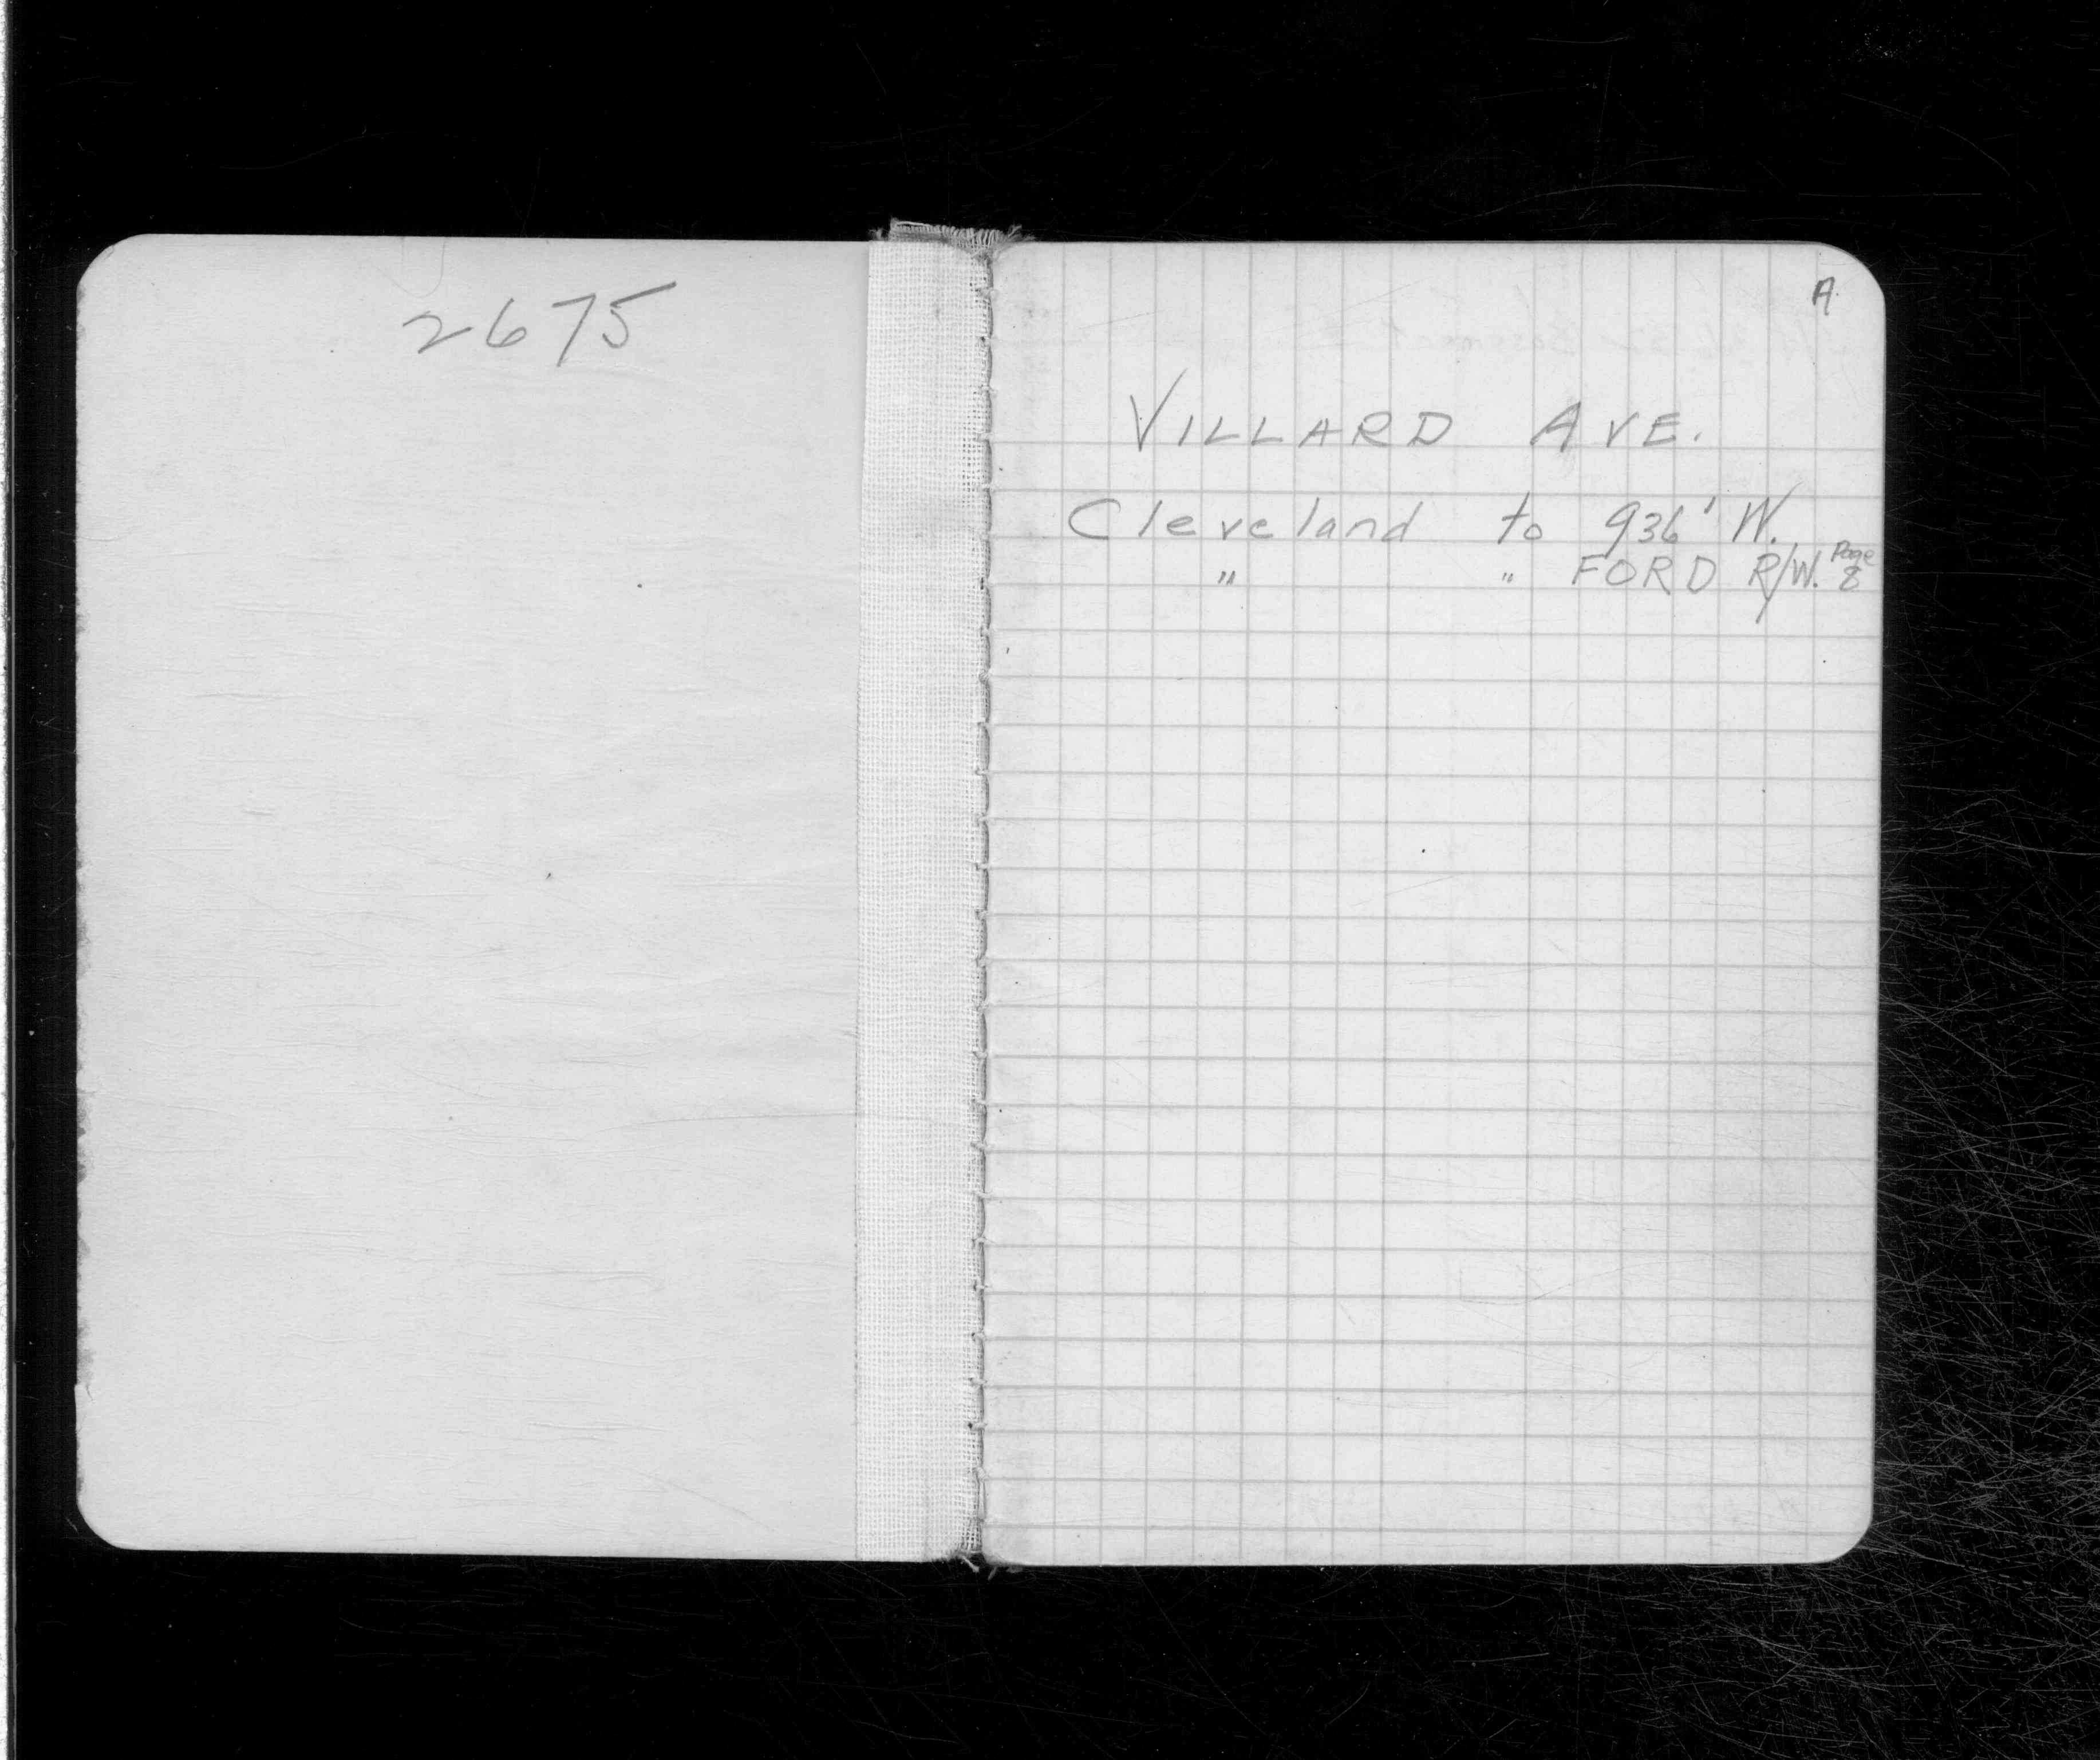 2675
A.
VILLARD AVE.
Cleveland to 936' W.
" " FORD R/W. Page 8